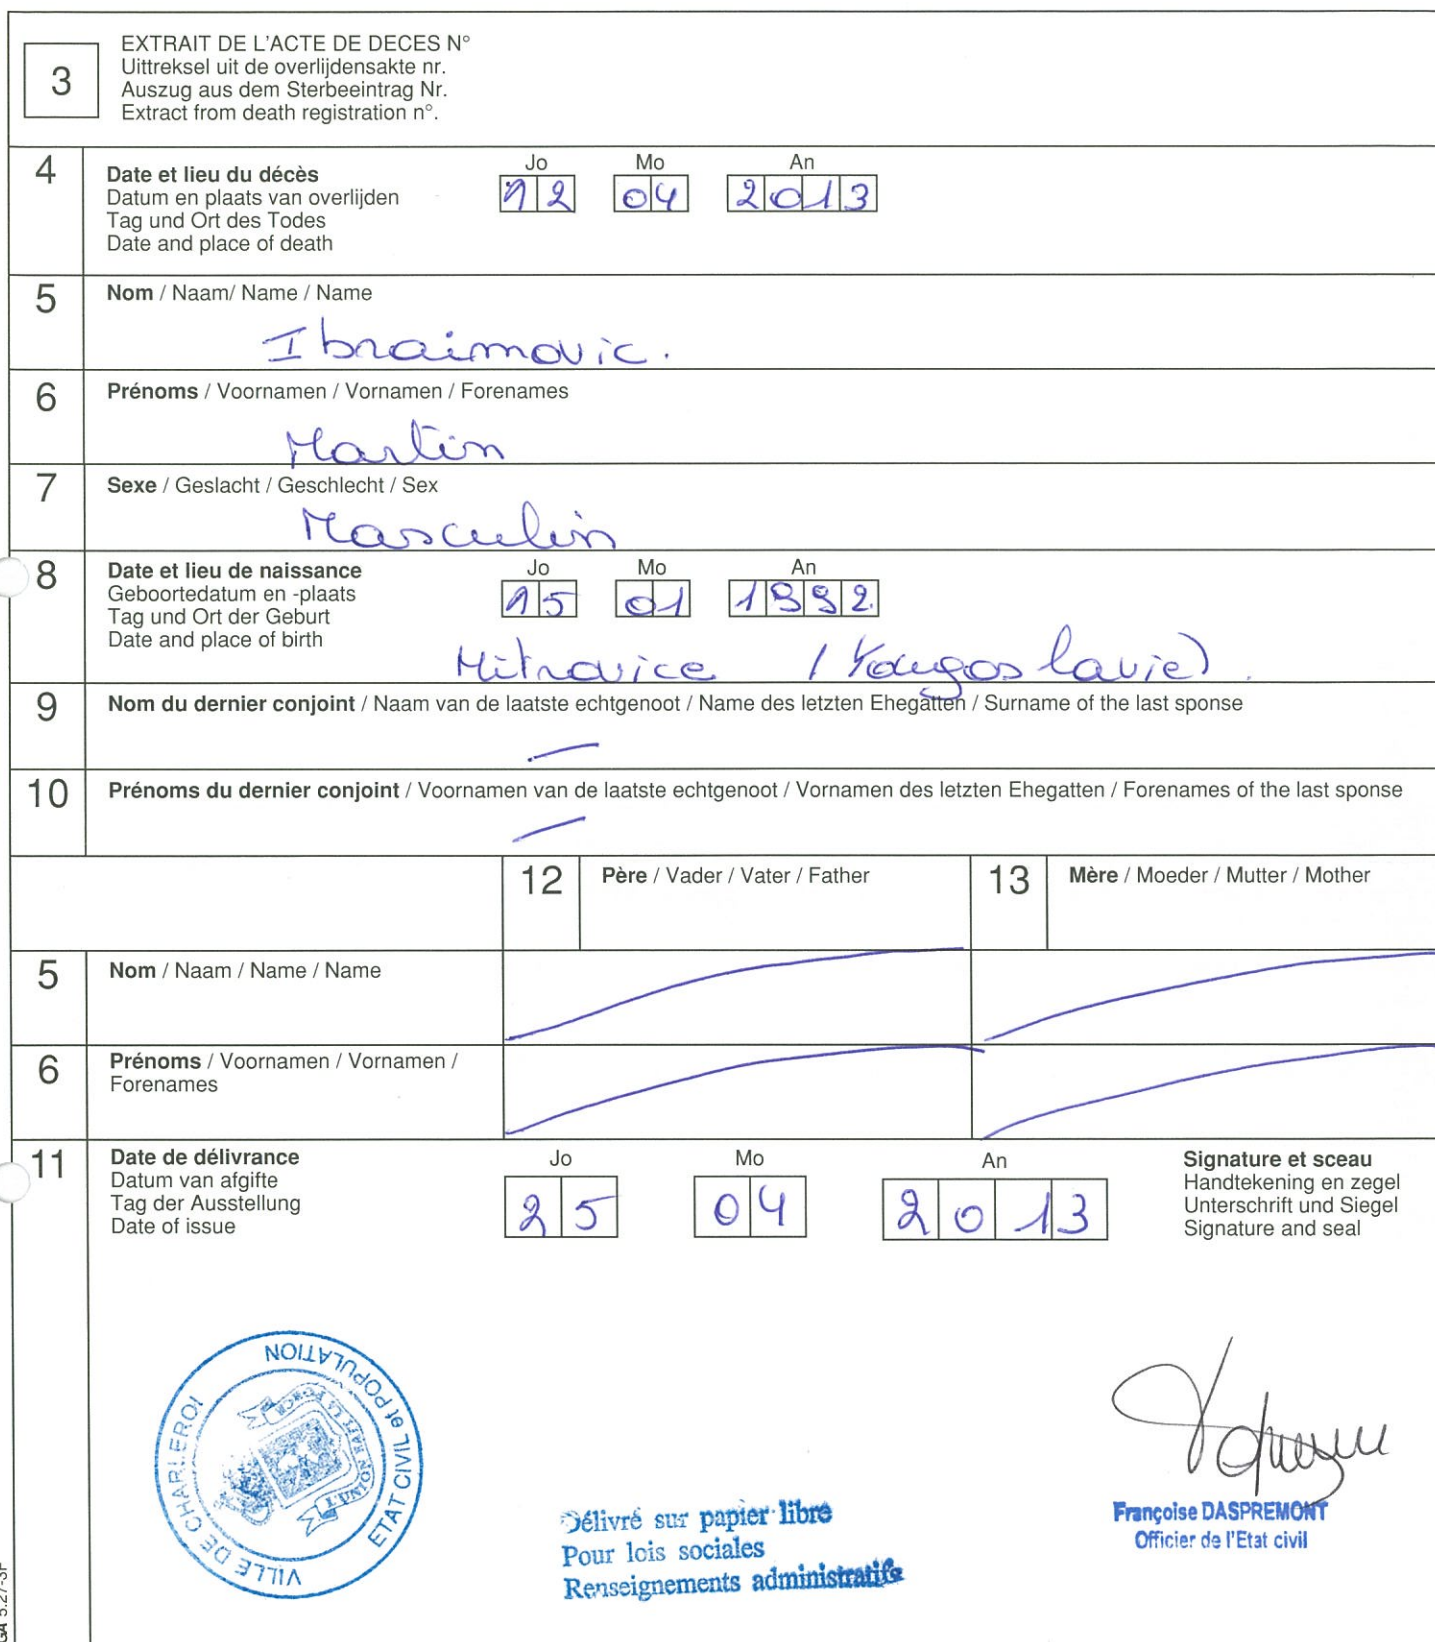 3
EXTRAIT DE L'ACTE DE DECES N°
Uittreksel uit de overlijdensakte nr.
Auszug aus dem Sterbeeintrag Nr.
Extract from death registration n°.
4
Date et lieu du décès
Datum en plaats van overlijden
Tag und Ort des Todes
Date and place of death
Jo Mo An
12 04 2013
5
Nom / Naam/ Name / Name
Ibraimovic.
6
Prénoms / Voornamen / Vornamen / Forenames
Martin
7
Sexe / Geslacht / Geschlecht / Sex
Masculin
8
Date et lieu de naissance
Geboortedatum en -plaats
Tag und Ort der Geburt
Date and place of birth
Jo Mo An
15 01 1992
Mitrovice (Yougoslavie).
9
Nom du dernier conjoint / Naam van de laatste echtgenoot / Name des letzten Ehegatten / Surname of the last sponse
10
Prénoms du dernier conjoint / Voornamen van de laatste echtgenoot / Vornamen des letzten Ehegatten / Forenames of the last sponse
12 Père / Vader / Vater / Father
13 Mère / Moeder / Mutter / Mother
5
Nom / Naam / Name / Name
6
Prénoms / Voornamen / Vornamen /
Forenames
11
Date de délivrance
Datum van afgifte
Tag der Ausstellung
Date of issue
Jo Mo An
25 04 2013
Signature et sceau
Handtekening en zegel
Unterschrift und Siegel
Signature and seal
VILLE DE CHARLEROI
ETAT CIVIL et POPULATION
Délivré sur papier libre
Pour lois sociales
Renseignements administratifs
Françoise DASPREMONT
Officier de l'Etat civil